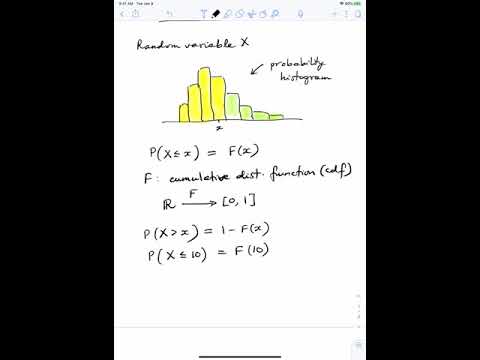 9:41 AM Tue Jan 9
Random variable X
probability
histogram
x
P(X ≤ x) = F(x)
F : cumulative dist. function (cdf)
ℝ F⟶ [0, 1]
P(X > x) = 1 − F(x)
P(X ≤ 10) = F(10)